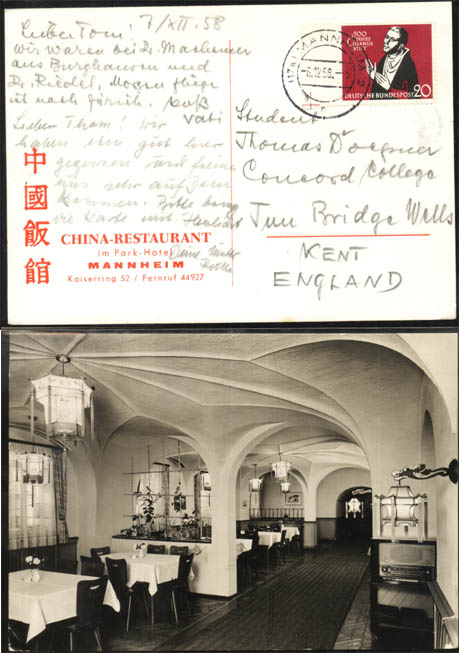 Lieber Tom! 7/XII.58
Wir waren bei Dr. Machemer
aus Burghausen und
Dr. Riedel, Morgen fliege
ich nach Zürich. Kuß
Vati
Lieber Thom! Wir
haben hier gut
gegessen und
uns sehr auf Dein
Kommen.
die Karte mit.
Deine Mutter
中國飯館
CHINA-RESTAURANT
im Park-Hotel
MANNHEIM
Kaiserring 52 / Fernruf 44927
MANNHEIM
-6.12.58
500 JAHRE
CUSANUS
STIFT
DEUTSCHE BUNDESPOST 20
Student
Thomas
Concord College
Tun Bridge Wells
KENT
ENGLAND